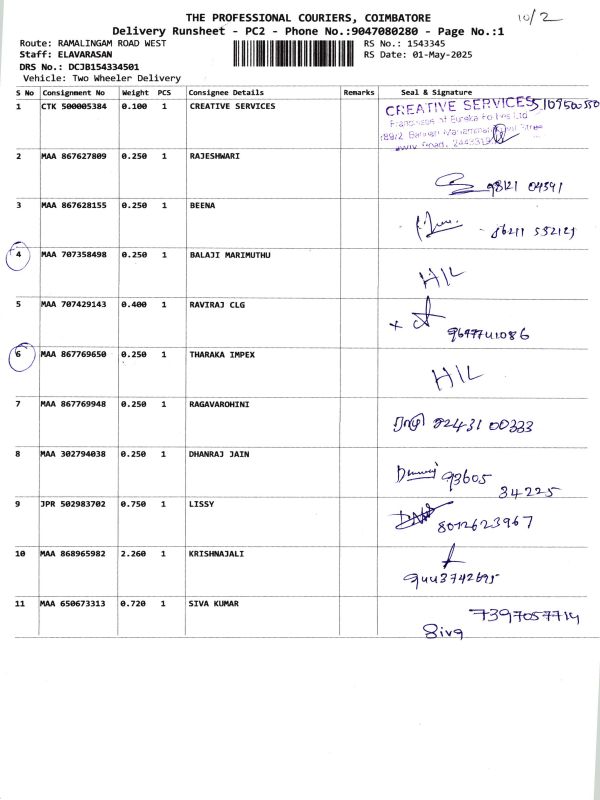 THE PROFESSIONAL COURIERS, COIMBATORE
10/2
Delivery Runsheet - PC2 - Phone No.:9047080280 - Page No.:1
Route: RAMALINGAM ROAD WEST RS No.: 1543345
Staff: ELAVARASAN RS Date: 01-May-2025
DRS No.: DCJB154334501
Vehicle: Two Wheeler Delivery
S No Consignment No Weight PCS Consignee Details Remarks Seal & Signature
1 CTK 500005384 0.100 1 CREATIVE SERVICES
CREATIVE SERVICES
2 MAA 867627809 0.250 1 RAJESHWARI
98121 04391
3 MAA 867628155 0.250 1 BEENA
4 MAA 707358498 0.250 1 BALAJI MARIMUTHU
H/L
5 MAA 707429143 0.400 1 RAVIRAJ CLG
9697741086
6 MAA 867769650 0.250 1 THARAKA IMPEX
H/L
7 MAA 867769948 0.250 1 RAGAVAROHINI
92431 00333
8 MAA 302794038 0.250 1 DHANRAJ JAIN
93605
34225
9 JPR 502983702 0.750 1 LISSY
8012623967
10 MAA 868965982 2.260 1 KRISHNAJALI
9443742695
11 MAA 650673313 0.720 1 SIVA KUMAR
7397057714
Siva